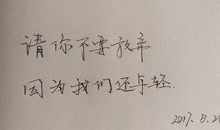 请你不要放弃
因为我们还年轻.
2017. 5. 2